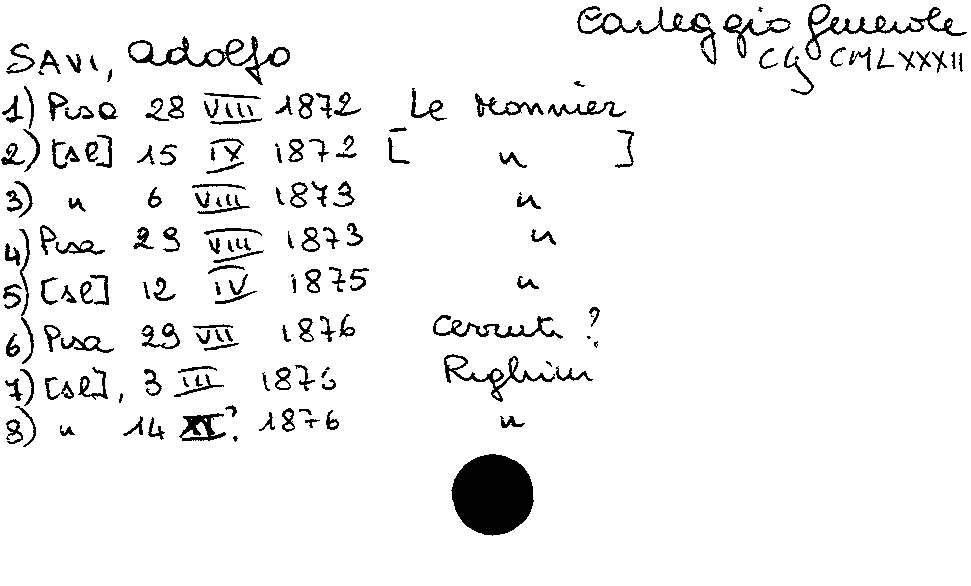 Carteggio Generale
SAVI, Adolfo CG CMLXXXII
1) Pisa 28 VIII 1872 Le Monnier
2) [sl] 15 IX 1872 [ " ]
3) " 6 VIII 1873 "
4) Pisa 29 VIII 1873 "
5) [sl] 12 IV 1875 "
6) Pisa 29 VII 1876 Cerruti ?
7) [sl], 3 III 1876 Righini
8) " 14 XI?. 1876 "